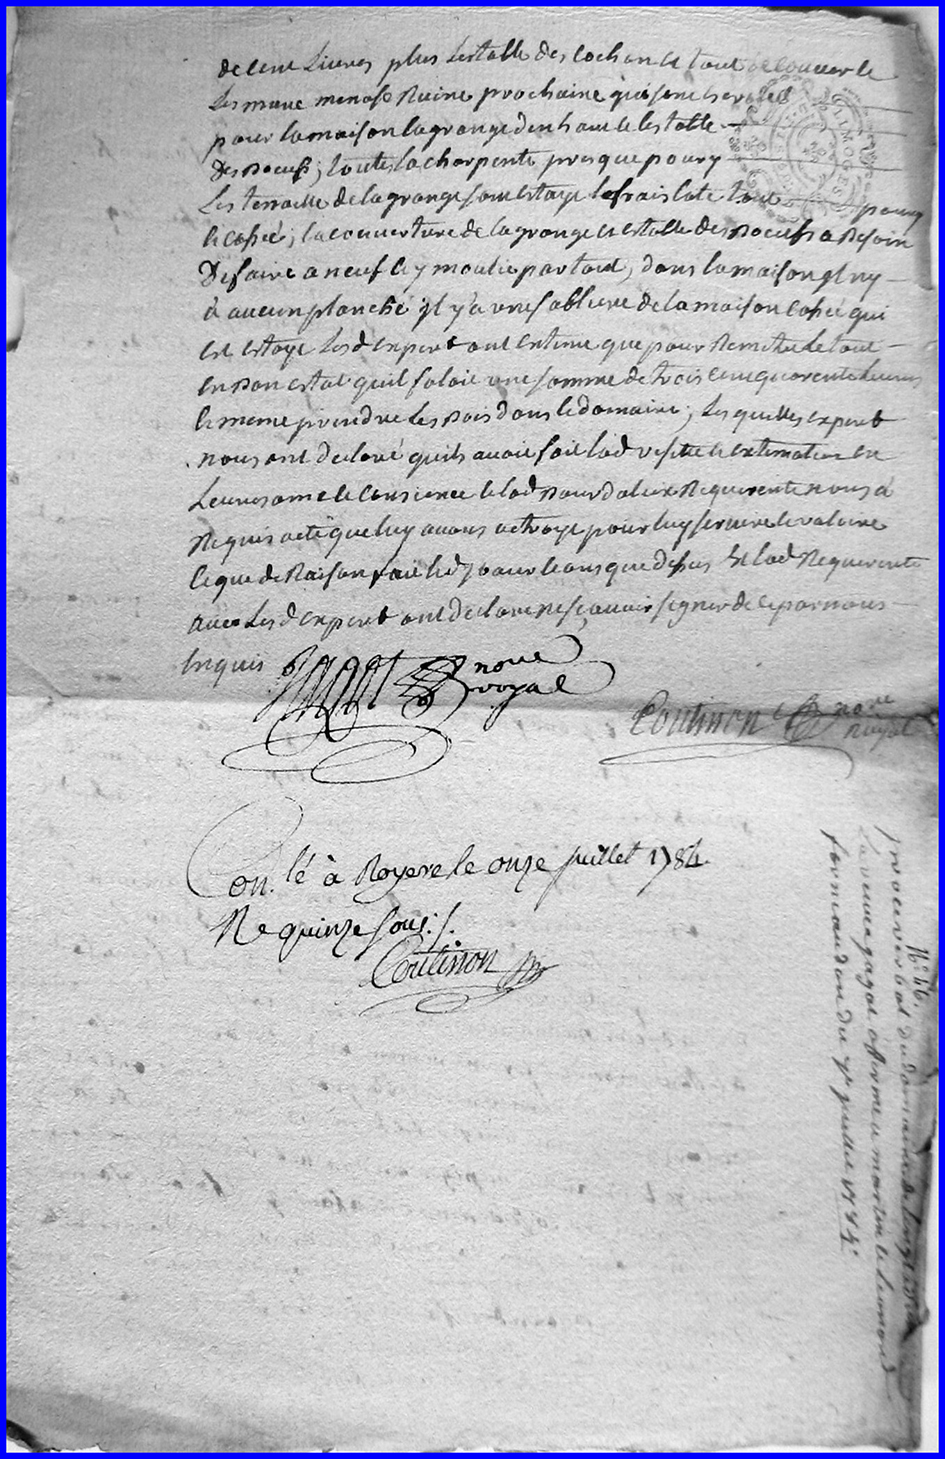 de cent Livres plus Lestable des cochon le tout decouver le
Les mure menase Ruine prochaine
pour la maison la grange den haut le lestable
Des Boeufs; toutte la charpente presque poury
Les terraille de la grange son estaye tout poury
le cassé; la couverture de la grange et estable des Boeufs a Besoin
De faire a neuf il y moulie partout, dans la maison yl ny
à aucun planché yl y a une sabliere de la maison cassé qui
est estaye Lesd expert ont estime que pour Remettre Le tout
en Bon estat quil faloit une somme de trois cent quarente Livres
le meme prendre Les Bois dans le domaine; Les quelles expert
nous ont declaré quils avoit fait lad visitte et extimation en
Leurs ame et Consience et lad Requerente nous à
Requis acte que luy avons octroye pour luy servir et valoire
ce que de Raison fait led jour et ans que dessus et lad Requerente
avec Les d expert ont declare ne sçavoir signer de ce par nous
Enquis
nore royal
Coutisson nore Royal
Con.lé à Royere le onze juillet 1784.
R quinze sous./.
Coutisson
N° 46.
procex verbal du domaine de
la veuve gagat afferme a martin le
du 4e juillet 1784.
LIMOGES